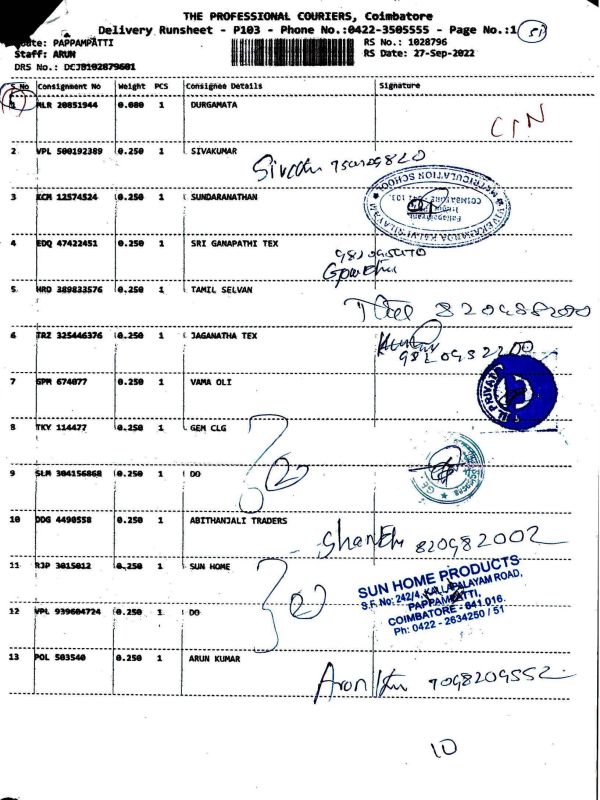 THE PROFESSIONAL COURIERS, Coimbatore
Delivery Runsheet - P103 - Phone No.:0422-3505555 - Page No.:1 51
PAPPAMPATTI RS No.: 1028796
Staff: ARUN RS Date: 27-Sep-2022
DRS No.: DCJB102879601
S.No Consignment No Weight PCS Consignee Details Signature
1 MLR 20851944 0.080 1 DURGAMATA
2 VPL 500192389 0.250 1 SIVAKUMAR
3 KCM 12574524 0.250 1 SUNDARANATHAN
VIVEKANANDA KALVI NILAYAM MATRICULATION SCHOOL
4 EDQ 47422451 0.250 1 SRI GANAPATHI TEX
5 HRD 389833576 0.250 1 TAMIL SELVAN
6 TRZ 325446376 0.250 1 JAGANATHA TEX
7 GPM 674077 0.250 1 VAMA OLI
8 TKY 114477 0.250 1 GEM CLG
2
9 SLM 304156868 0.250 1 DO
10 DDG 4490558 0.250 1 ABITHANJALI TRADERS
820982002
11 RJP 3015012 0.250 1 SUN HOME
2
SUN HOME PRODUCTS
S.F. No: 242/4, KALLAPALAYAM ROAD,
PAPPAMPATTI,
COIMBATORE - 641.016.
Ph: 0422 - 2634250 / 51
12 VPL 939604724 0.250 1 DO
13 POL 503540 0.250 1 ARUN KUMAR
7098209552
10